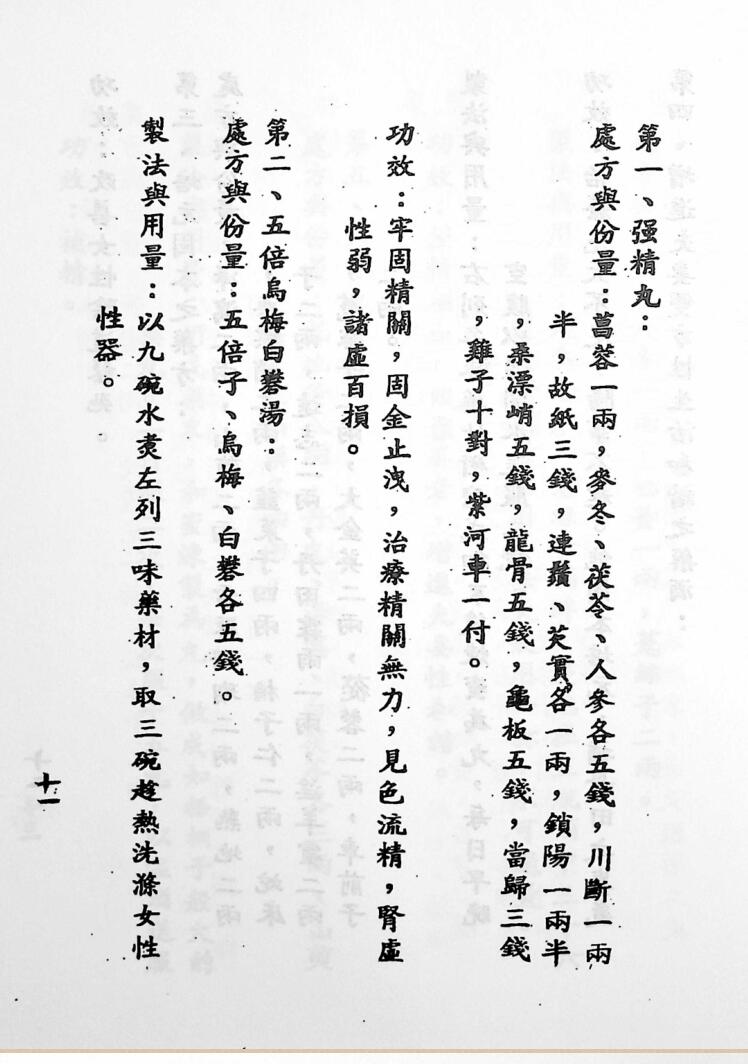 第一、强精丸：
處方與份量：菖蓉一兩，麥冬、茯苓、人參各五錢，川斷一兩
半，故紙三錢，連鬚、芡實各一兩，鎖陽一兩半
，桑漂峭五錢，龍骨五錢，龜板五錢，當歸三錢
，雞子十對，紫河車一付。
功效：牢固精關，固金止洩，治療精關無力，見色流精，腎虛
性弱，諸虛百損。
第二、五倍烏梅白礬湯：
處方與份量：五倍子、烏梅、白礬各五錢。
製法與用量：以九碗水煑左列三味藥材，取三碗趁熱洗滌女性
性器。
十一